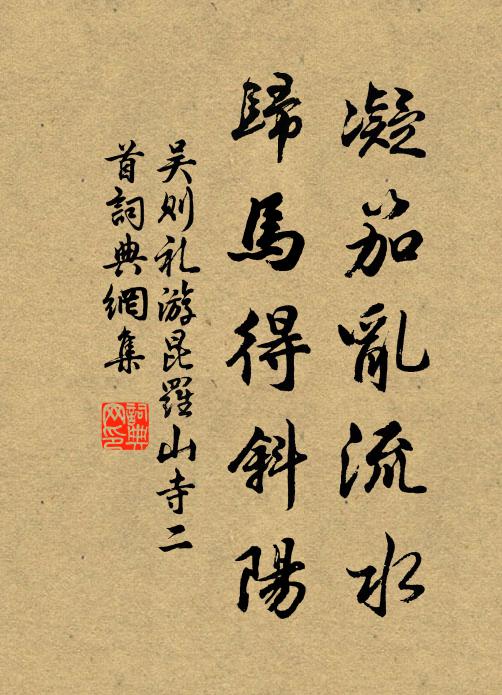 凝笳亂流水
歸馬得斜陽
吴则礼游昆羅山寺二
首詞典網集
詞典
網印